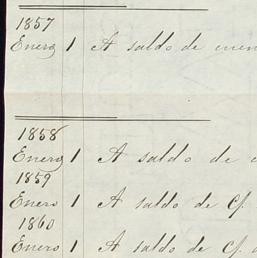 1857
Enero 1 A saldo de
1858
Enero 1 A saldo de
1859
Enero 1 A saldo de Cf.
1860
Enero 1 A saldo de Cf.